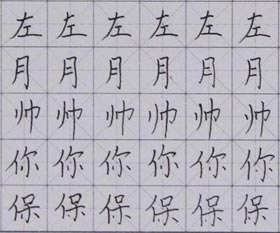 左左左左左左
月月月月月月
帅帅帅帅帅帅
你你你你你你
保保保保保保